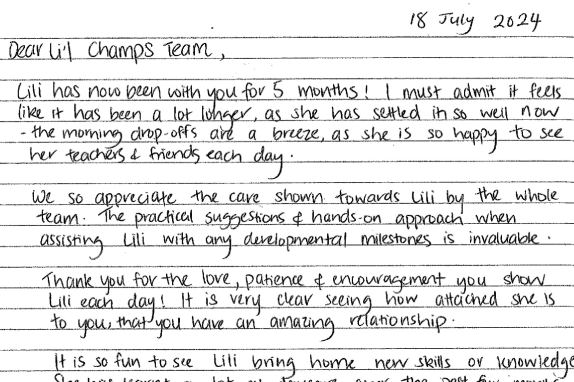 18 July 2024
Dear Li'l Champs Team,
Lili has now been with you for 5 months! I must admit it feels
like it has been a lot longer, as she has settled in so well now
- the morning drop-offs are a breeze, as she is so happy to see
her teachers & friends each day.
We so appreciate the care shown towards Lili by the whole
team. The practical suggestions & hands-on approach when
assisting Lili with any developmental milestones is invaluable.
Thank you for the love, patience & encouragement you show
Lili each day! It is very clear seeing how attached she is
to you, that you have an amazing relationship.
It is so fun to see Lili bring home new skills or knowledge